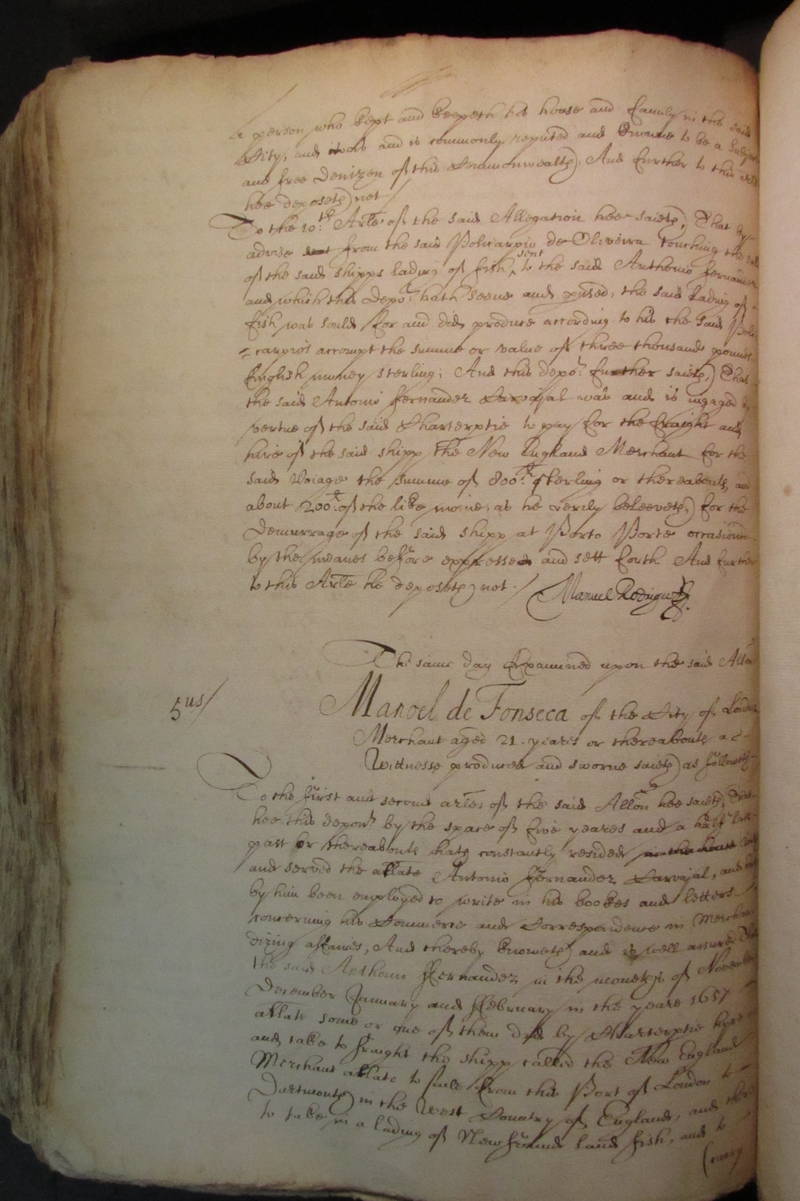 a person who kept and keepeth his house and family in this said
City, and was and is commonly reputed and knowne to be a Subject
and free Denizen of this Commonwealth, And further to this
hee deposeth not /
To the 10th Arle of the said Allegation hee saieth, That by
advise from the said Policarpio de Oliveira touching the
of the said shipps lading of fish sent to the said Anthonio Fernandez
and which this depot hath seene and perused, the said lading of
fish was sould for and did produce according to his the said Poli
=carpio's accompt the summe or value of three thousand pounds
English money sterling; And this depot further saieth, That
the said Antonio Fernandez Carvajal was and is ingaged by
vertue of the said Charterptie to pay for the fraight and
hire of the said shipp the New England Merchant for the
said Voiage the summe of 800li sterling or thereabouts, and
about 200li of the like monie, as he verily beleeveth, for the
Demurrage of the said shipp at Porto Porte occasioned
by the meanes before expressed and sett forth And further
to this Arle he deposeth not. /
Manuel Rodrigues
The same day Examined upon the said Allon
5us /
Manoel de Fonseca of the City of London
Merchant aged 21 yeares or thereabouts a
Wittnesse produced and sworne saieth as followeth
To the first and second arles of the said Allon hee saieth, That
hee this depont by the space of five yeares and a half last
past or thereabouts hath constantly resided
and served the arlate Antonio Fernandez Carvajal, and
by him been employed to write in his bookes and letters
concerning his Commerce and Correspondence in Merchan
dizing affaires, And thereby knoweth and is well assured
the said Anthonio Fernandez in the moneths of November
December January and February in the yeare 1657
arlate some or one of them did by Charterptie hyre
and take to fraight the shipp called the New England
Merchant arlate to saile from this Port of London to
Dartmouth in the West Country of England, and there
to take in a lading of Newfound land fish, and to
(carry